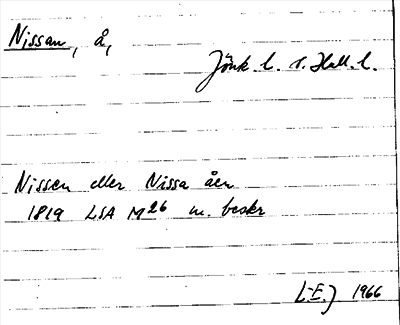 Nissan, å,
Jönk. l. o. Hall. l.
Nissen eller Nissa åen
1819 LSA M26 m. beskr
L-E.J 1966